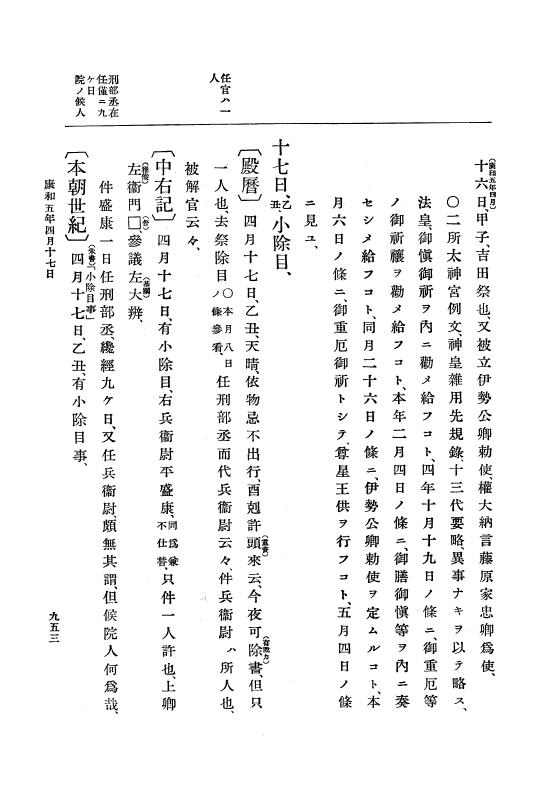 任官ハ一
人
刑部丞在
任僅ニ九
ケ日
院ノ候人
(康和五年四月)
十六日、甲子、吉田祭也、又被立伊勢公卿勅使、權大納言藤原家忠卿爲使、
〇二所太神宮例文、神皇雜用先規錄、十三代要略、異事ナキヲ以テ略ス、
法皇、御愼御祈ヲ內ニ勸メ給フコト、四年十月十九日ノ條ニ、御重厄等
ノ御祈禳ヲ勸メ給フコト、本年二月四日ノ條ニ、御膳御愼等ヲ內ニ奏
セシメ給フコト、同月二十六日ノ條ニ、伊勢公卿勅使ヲ定ムルコト、本
月六日ノ條ニ、御重厄御祈トシテ、尊星王供ヲ行フコト、五月四日ノ條
ニ見ユ、
十七日、乙丑、小除目、
〔殿曆〕四月十七日、乙丑、天晴、依物忌不出行、酉剋許頭來云、今夜可除書、但只
一人也、去祭除目〇本月八日ノ條參看、任刑部丞而代兵衞尉云々、件兵衞尉ハ所人也、
被解官云々、
〔中右記〕四月十七日、有小除目、右兵衞尉平盛康、同爲兼不仕替、只件一人許也、上卿
左衞門□、參議左大辨、
件盛康一日任刑部丞、纔經九ケ日、又任兵衞尉、頗無其謂、但候院人何爲哉、
〔本朝世紀〕(朱書)「小除目事」四月十七日、乙丑、有小除目事、
康和五年四月十七日
九五三